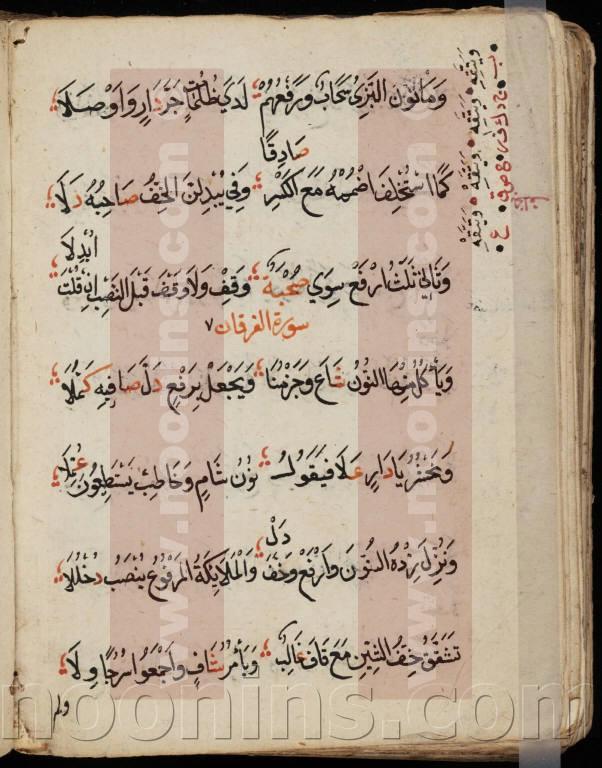 وَمَا نَوَّنَ الْبَزِّي سَحَابٌ وَرَفْعُهُمْ لَدَى ظُلُمَاتٍ جَرَّ دَارٍ وَأَوْصَلَا
صَادِقًا
كَمَا اسْتُخْلِفَ اضْمُمْهُ مَعَ الْكَسْرِ وَفِي يُبْدِلَنَّ الْخِفُّ صَاحِبُهُ دَلَا
أُبْدِلَا
وَثَانِي ثَلَاثَ ارْفَعْ سِوَى صُحْبَةٍ وَقِفْ وَلَا وَقْفَ قَبْلَ النَّصْبِ إِنْ قُلْتَ
سورة الفرقان ٧
وَيَأْكُلُ مِنْهَا النُّونُ شَاعَ وَجَزْمُنَا وَيَجْعَلْ بِرَفْعٍ دَلَّ صَافِيهِ كُمَّلَا
وَنَحْشُرُ يَا دَارٍ عَلَا فَيَقُولُ نُونُ شَامٍ وَخَاطِبْ يَسْتَطِيعُونَ عُمَّلَا
دَلْ
وَنُزِّلَ زِدْهُ النُّونَ وَارْفَعْ وَخِفَّ وَالْمَلَائِكَةُ الْمَرْفُوعُ يُنْصَبُ دُخْلُلَا
تَشَقَّقُ خِفُّ الشِّينِ مَعَ قَافَ غَالِبٌ وَيَأْمُرُ شَافٍ وَاجْمَعُوا سُرُجًا وِلَا
ولم
ويتقه ويتقه ويتقه ويتقه
noorins.com
www.noorins.com
www.noorins.com